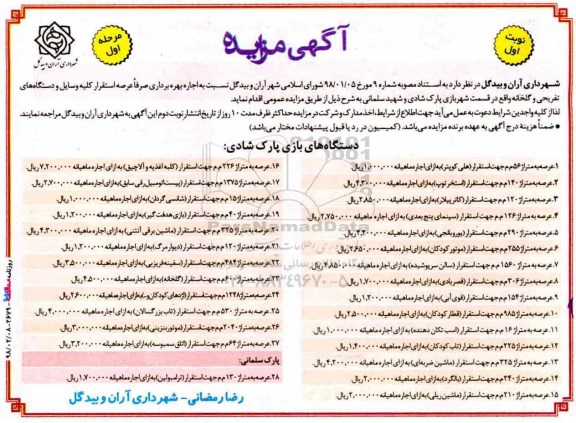 آگهی مزایده
نوبت اول
مرحله اول
شهرداری آران و بیدگل
شهرداری آران و بیدگل در نظر دارد به استناد مصوبه شماره ۹ مورخ ۹۸/۰۱/۰۵ شورای اسلامی شهر آران و بیدگل نسبت به اجاره بهره برداری صرفاً عرصه استقرار کلیه وسایل و دستگاه‌های
تفریحی و گلخانه واقع در قسمت شهربازی پارک شادی و شهید سلمانی به شرح ذیل از طریق مزایده عمومی اقدام نماید.
لذا از کلیه واجدین شرایط دعوت به عمل می‌آید جهت اطلاع از شرایط، اخذ مدارک و شرکت در مزایده حداکثر ظرف مدت ۱۰ روز از تاریخ انتشار نوبت دوم این آگهی به شهرداری آران و بیدگل مراجعه نمایند.
• ضمناً هزینه درج آگهی به عهده برنده مزایده می‌باشد. (کمیسیون در رد یا قبول پیشنهادات مختار می‌باشد)
دستگاه‌های بازی پارک شادی:
۱. عرصه به متراژ ۵۶ م م جهت استقرار (هلی کوپتر) به ازای اجاره ماهیانه ۱,۰۰۰,۰۰۰ ریال.
۲. عرصه به متراژ ۱۴۰ م م جهت استقرار (استخر توپ) به ازای اجاره ماهیانه
۳. عرصه به متراژ ۱۲۰ م م جهت استقرار (کاترپیلار) به ازای اجاره ماهیانه
۴. عرصه به متراژ ۱۲۶ م م جهت استقرار (سینمای پنج بعدی) به ازای اجاره ماهیانه ۲,۷۵۰,۰۰۰
۵. عرصه به متراژ ۲۹۰ م م جهت استقرار
۶. عرصه به متراژ ۲۵۵ م م جهت استقرار (موتور کودکان) به ازای اجاره ماهیانه
۷. عرصه به متراژ ۱۵۶۰ م م جهت استقرار (سالن سرپوشیده) به ازای اجاره ماهیانه
۸. عرصه به متراژ ۳۰۶ م م جهت استقرار (قصر بادی) به ازای اجاره ماهیانه ۱,۷۰۰,۰۰۰ ریال.
۹. عرصه به متراژ ۱۵۴ م م جهت استقرار (قوی آبی) به ازای اجاره ماهیانه ۱,۲۰۰,۰۰۰ ریال.
۱۰. عرصه به متراژ ۹۸۵ م م جهت استقرار (قطار کودکان) به ازای اجاره ماهیانه ۲,۵۰۰,۰۰۰ ریال.
۱۱. عرصه به متراژ ۱۶ م م جهت استقرار (اسب تکان دهنده) به ازای اجاره ماهیانه
۱۲. عرصه به متراژ ۲۲۵ م م جهت استقرار (تاب کودکان) به ازای اجاره ماهیانه ۱,۴۰۰,۰۰۰ ریال.
۱۳. عرصه به متراژ ۳۲۵ م م جهت استقرار (ماشین ضربه‌ای) به ازای اجاره ماهیانه ۴,۲۰۰,۰۰۰ ریال.
۱۴. عرصه به متراژ ۳۴۰ م م جهت استقرار (بالگرد) به ازای اجاره ماهیانه ۲,۰۰۰,۰۰۰ ریال.
۱۵. عرصه به متراژ ۲۱۰ م م جهت استقرار (ماشین ریلی) به ازای اجاره ماهیانه ۲,۰۰۰,۰۰۰ ریال.
۱۶. عرصه به متراژ ۲۲۶ م م جهت استقرار (کلبه اغذیه و آلاچیق) به ازای اجاره ماهیانه ۷,۲۰۰,۰۰۰ ریال.
۱۷. عرصه به متراژ ۱۳۷۵ م م جهت استقرار (پیست اتومبیل برقی سابق) به ازای اجاره ماهیانه ۲,۷۰۰,۰۰۰ ریال.
۱۸. عرصه به متراژ ۱۵ م م جهت استقرار (شانسی گردان) به ازای اجاره ماهیانه ۱,۰۰۰,۰۰۰ ریال.
۱۹. عرصه به متراژ ۴۰ م م جهت استقرار (بازی هدفگیر) به ازای اجاره ماهیانه ۱,۲۰۰,۰۰۰ ریال.
۲۰. عرصه به متراژ ۳۲۵ م م جهت استقرار (ماشین برقی آنتنی) به ازای اجاره ماهیانه ۴,۲۰۰,۰۰۰ ریال.
۲۱. عرصه به متراژ ۱۲۰ م م جهت استقرار (دیوار مرگ) به ازای اجاره ماهیانه ۱,۲۰۰,۰۰۰ ریال.
۲۲. عرصه به متراژ ۴۸۴ م م جهت استقرار (سفینه فریزبی) به ازای اجاره ماهیانه ۳,۵۰۰,۰۰۰ ریال.
جهت استقرار (گلخانه) به ازای اجاره ماهیانه ۴,۵۰۰,۰۰۰ ریال.
۲۴. عرصه به متراژ ۱۲۴۸ م م جهت استقرار (اژدهای کودکان و) به ازای اجاره ماهیانه ۲,۶۰۰,۰۰۰ ریال.
۲۵. عرصه به متراژ ۵۳۰ م م جهت استقرار (تاب بزرگسالان) به ازای اجاره ماهیانه ۴,۰۰۰,۰۰۰ ریال.
۲۶. عرصه به متراژ ۲۰۴۰ م م جهت استقرار (موتور بنزینی) به ازای اجاره ماهیانه ۳,۰۰۰,۰۰۰ ریال.
۲۷. عرصه به متراژ ۶۴ م م جهت استقرار (اتاق سمبوسه) به ازای اجاره ماهیانه ۳,۲۰۰,۰۰۰ ریال.
پارک سلمانی:
۲۸. عرصه به متراژ ۱۳۰ م م جهت استقرار (ترامبولین) به ازای اجاره ماهیانه ۱,۷۰۰,۰۰۰ ریال.
رضا رمضانی - شهرداری آران و بیدگل
ParsNamadData
۰۲۱-۸۸۳۴۹۶۷۰-۵
۹۸/۰۲/۰۸-۲۶۷۹